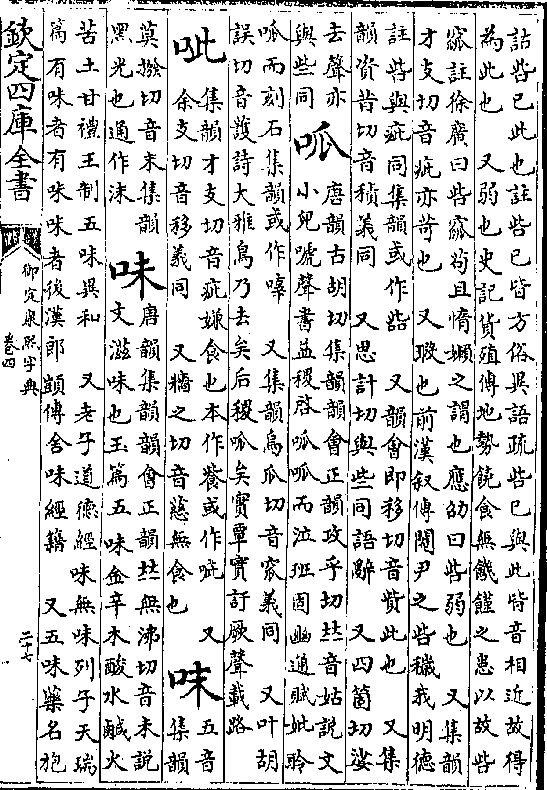 訿呰已此也註呰已皆方俗異語疏呰已與此皆音相近故得
為此也　又弱也史記貨殖傳地勢饒食無饑饉之患以故呰
窳註徐廣曰呰窳茍且惰嬾之謂也應劭曰呰弱也　又集韻
才支切音疵亦苛也　又瑕也前漢叙傳閹尹之呰穢我明德
註呰與疵同集韻或作啙　又韻會即移切音貲此也　又集
韻資昔切音積義同　又思計切與些同語辭　又四箇切娑
去聲亦
與些同
呱
唐韻古胡切集韻韻會正韻攻乎切𠀤音姑說文
小兒嗁聲書益稷啓呱呱而泣班固幽通賦妣聆
呱而刻石集韻或作㖵　又集韻烏瓜切音窊義同　又叶胡
誤切音護詩大雅鳥乃去矣后稷呱矣實覃實訏厥聲載路
呲
集韻才支切音疵嫌食也本作飺或作呲　又
余支切音移義同　又牆之切音慈無食也
味
五音
集韻
莫撥切音末集韻
黑光也通作沬
味
唐韻集韻韻會正韻𠀤無沸切音未說
文滋味也玉篇五味金辛木酸水鹹火
苦土甘禮王制五味異和　又老子道德經味無味列子天瑞
篇有味者有味味者後漢郎顗傳含味經籍　又五味藥名抱
欽定四庫全書
御定康熙字典
卷四
二十七